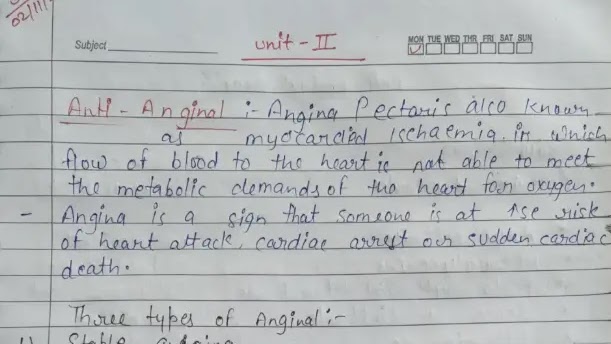 02/11/
Subject
Unit - II
MON TUE WED THR FRI SAT SUN
Anti - Anginal :- Angina Pectaris also known
as myocardial Ischaemia in which
flow of blood to the heart is not able to meet
the metabolic demands of the heart for oxygen.
- Angina is a sign that someone is at ↑se risk
of heart attack, cardiac arrest or sudden cardiac
death.
Three types of Anginal :-
Stable angina